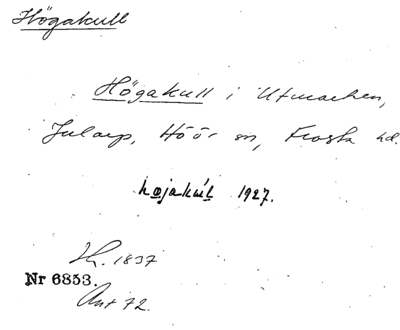 Högakull
Högakull i Utmarken,
Jularp, Höör sn, Frosta hd.
højakúl 1927.
Lh. 1837
Nr 6853.
Ant 72.